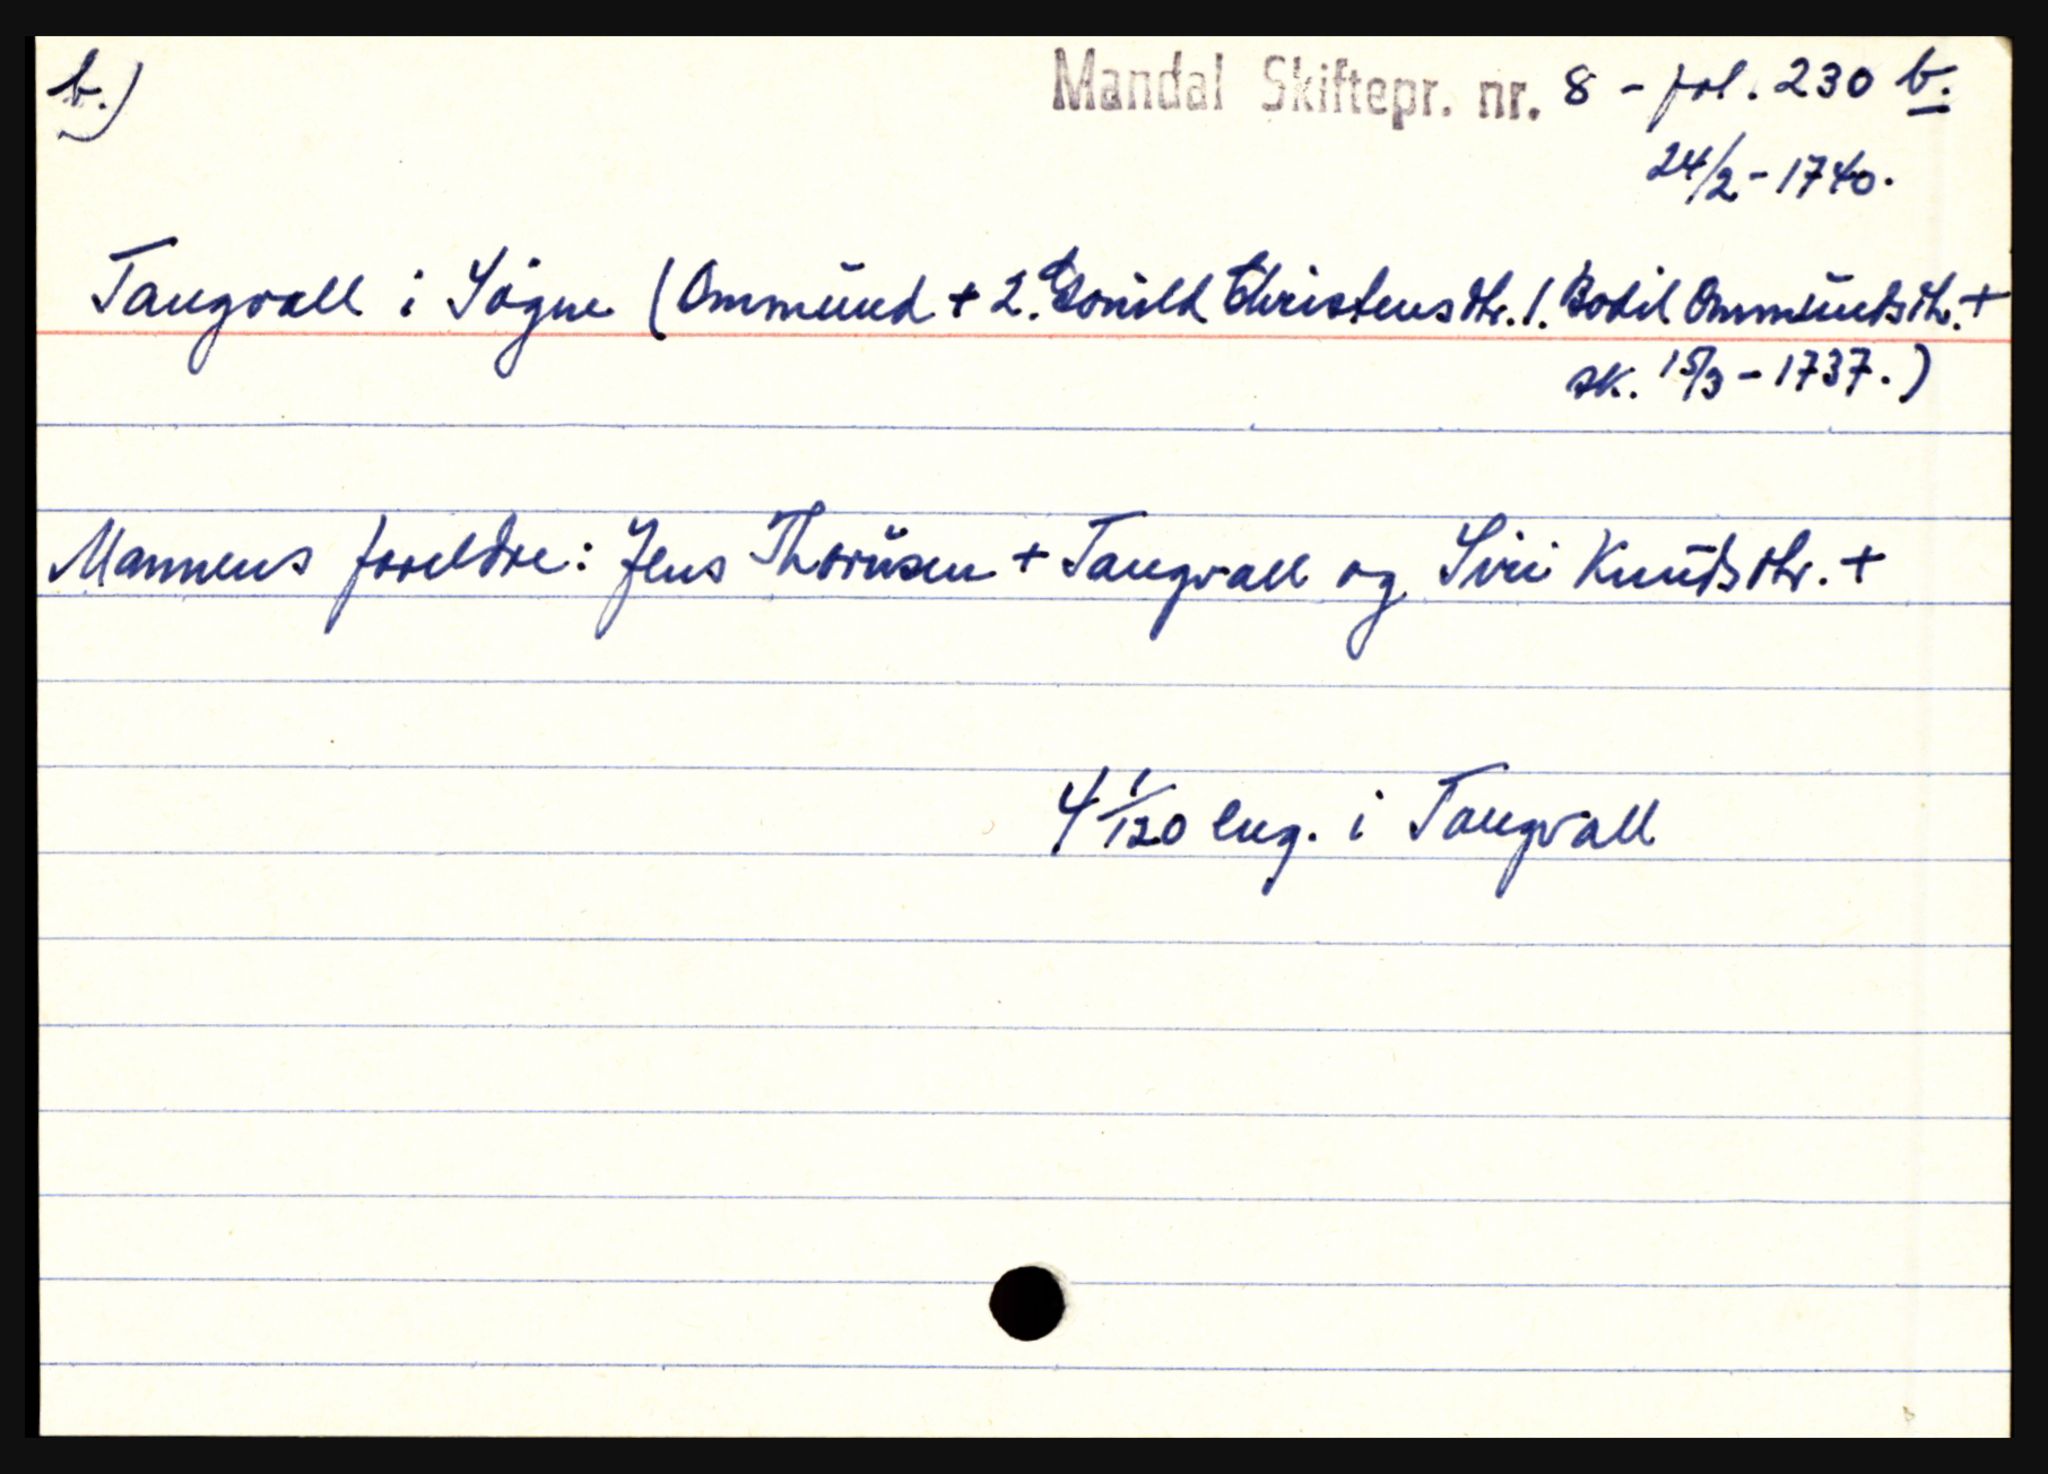 b.) Mandal Skiftepr. nr. 8 - fol. 230 b.
24/2 - 1740.
Tangvall i Søgne (Ommund + 2. Gonild Christensdtr. 1. Bodil Ommundsdtr. +
sk. 15/3 - 1737.)
Mannens foreldre: Jens Thorüsen + Tangvall og Siri Knudsdtr. +
4 1/120 eng. i Tangvall